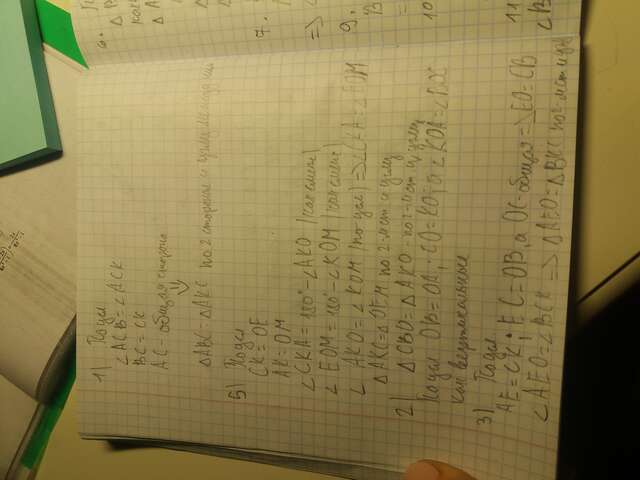 1) По усл
∠ACB = ∠ACK
BC = CK
AC - общая сторона
⇓
△ABC = △AKC по 2 сторонам и углу между ними
5) По усл
CK = OE
AK = OM
∠CKA = 180° - ∠AKO (как смеж)
∠EOM = 180° - ∠KOM (как смеж)
∠AKO = ∠KOM (по усл) => ∠CKA = ∠EOM
△AKC = △OEM по 2-м ст и углу
2) △CBO = △AKO - по 2-м ст и углу
По усл OB = OA, CO = KO, а ∠KOA = ∠BOC
как вертикальные
3) По усл
AE = CK; EC = OB, а OC - общая => EO = CB
∠AEO = ∠BCK => △AEO = △BKC по 2-м ст и углу
6.
△ B
как
△ A
7.
=>
9.
B
=
10
11
∠B